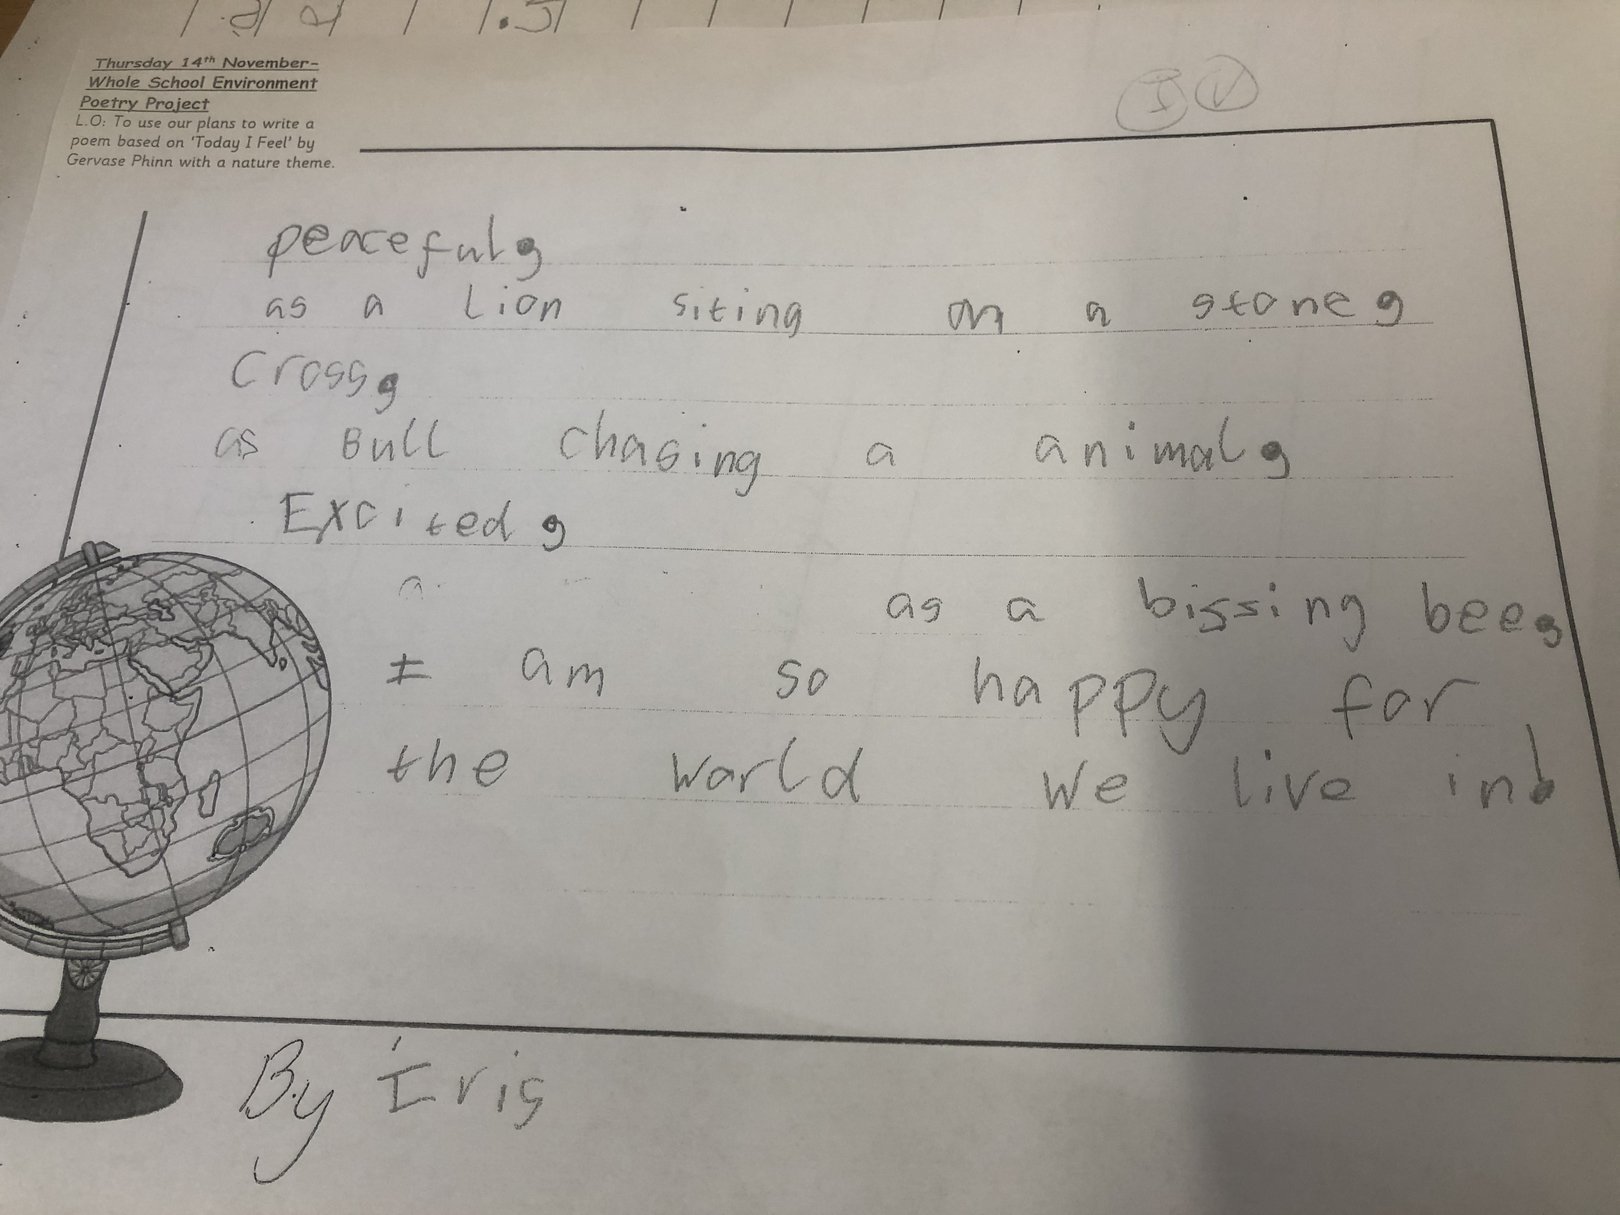 Thursday 14th November-
Whole School Environment
Poetry Project
L.O: To use our plans to write a
poem based on 'Today I Feel' by
Gervase Phinn with a nature theme.
I V
peaceful,
as a Lion siting on a stone,
Cross,
as Bull chasing a animal,
Excited,
as a bissing bee,
I am so happy for
the world we live in!
By Iris